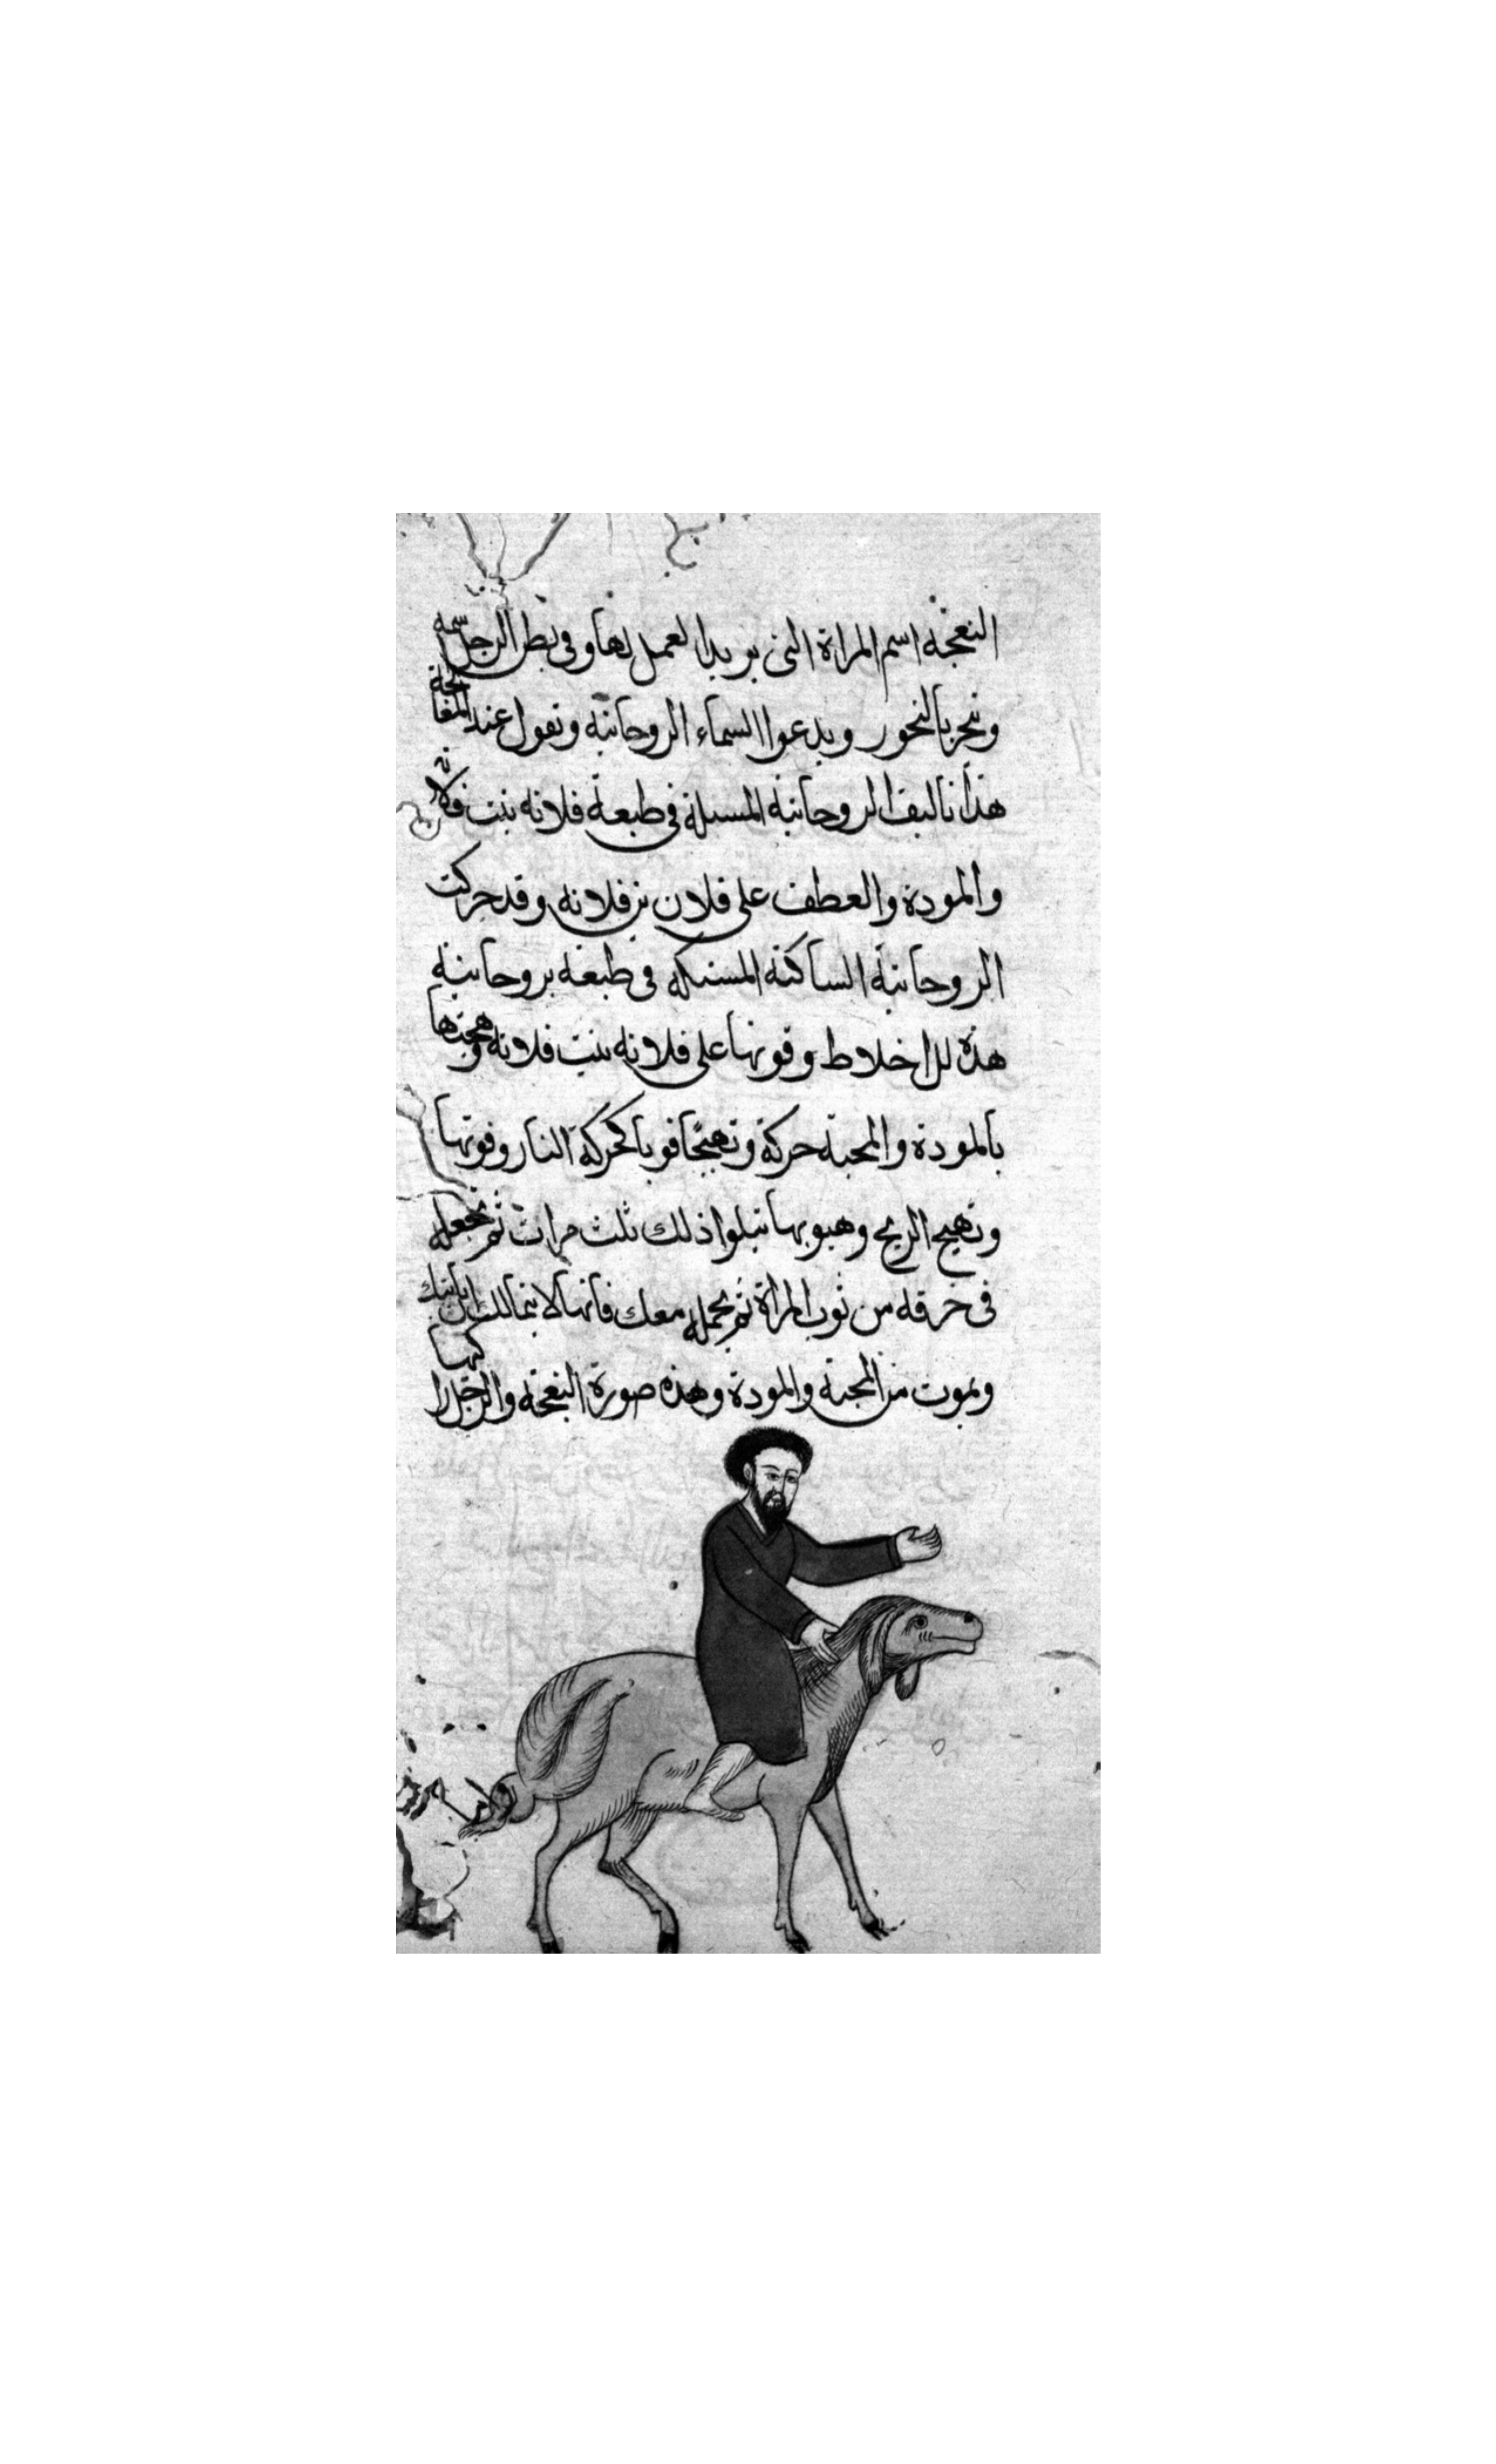 النعجة اسم المراة التى يريد العمل لها وفى بطن الرجل اسمه
ونبخر بالبخور ويدعوا السماء الروحانية وتقول عند المفاتحة
هذا تاليف الروحانية المسبلة فى طبعة فلانه بنت فلانة
والمودة والعطف على فلان بن فلانه وقد حركت
الروحانية الساكنة المستكه فى طبعة بروحانية
هذه للاخلاط وقوتها على فلانه بنت فلانه وهيجتها
بالمودة والمحبة حركة وتهيجا قويا كحركة النار وقوتها
وتهيج الريح وهبوبها تبلوا ذلك ثلث مرات ثم تجعله
فى خرقه من ثوب المراة ثم يحمله معك فانها لا تتمالك ان تاتيك
وتموت من المحبة والمودة وهذه صورة النعجة والرجل راكبها